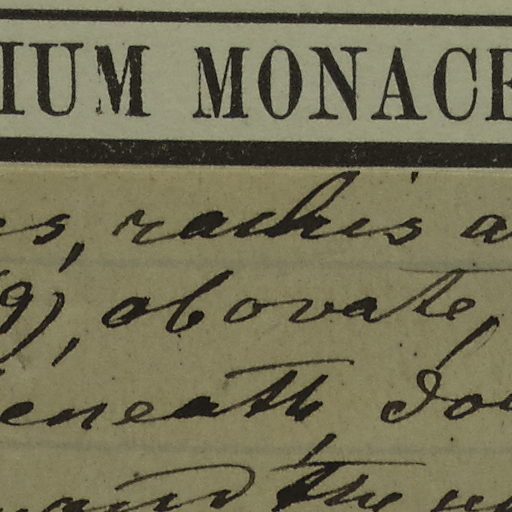 IUM MONACE
es, rachis a
(9), obovate,
beneath, do
and the up